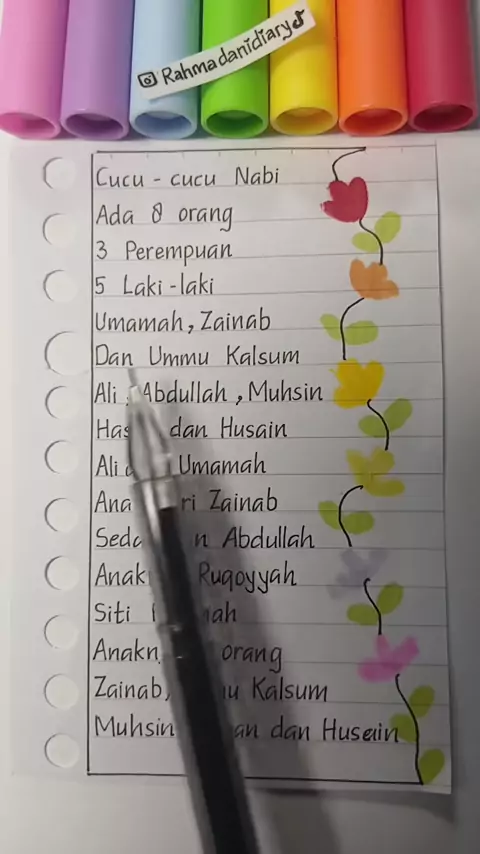 Rahmadanidiary
Cucu - cucu Nabi
Ada 8 orang
3 Perempuan
5 Laki-laki
Umamah, Zainab
Dan Ummu Kalsum
Ali, Abdullah, Muhsin
dan Husain
Ali Umamah
Zainab
Abdullah
Ruqoyyah
Siti
orang
Zainab, Kalsum
Muhsin dan Husain